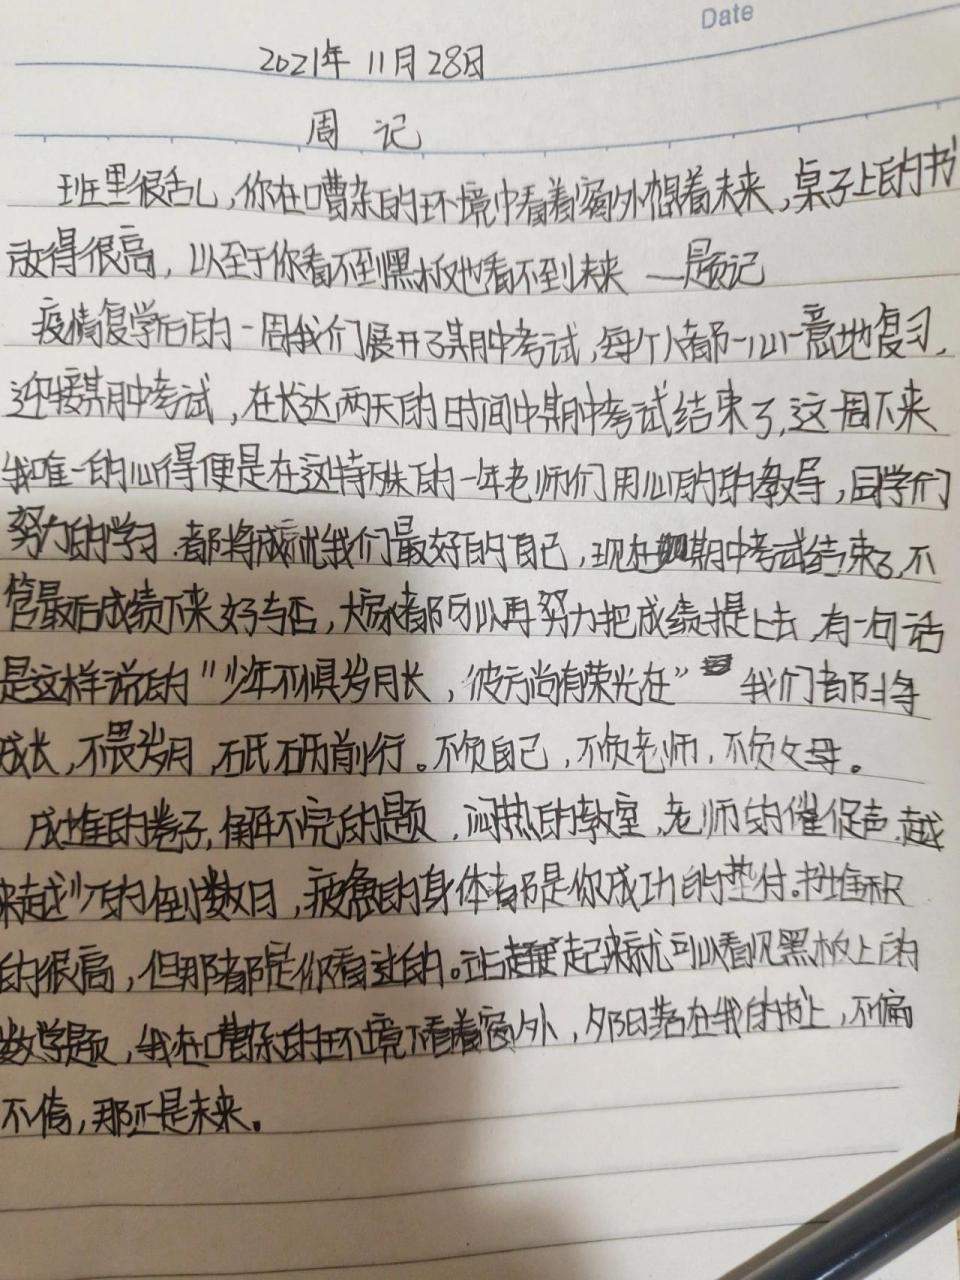 Date
2021年 11月28日
周 记
班里很乱,你在嘈杂的环境中看着窗外想着未来,桌子上的书
放得很高,以至于你看不到黑板也看不到未来 ——题记
疫情复学后的一周我们展开了期中考试,每个人都一心一意地复习,
迎接期中考试,在长达两天的时间中期中考试结束了,这一周下来
我唯一的心得便是在这特殊的一年老师们用心良的的教导,同学们
努力的学习,都将成就我们最好的自己,现在期中考试结束了,不
管最后成绩下来好与否,大家都可以再努力把成绩提上去,有一句话
是这样说的"少年不惧岁月长,彼方尚有荣光在" 我们都将
成长,不畏岁月,砥砺前行。不负自己,不负老师,不负父母。
成堆的卷子,解不完的题,闷热的教室,老师的催促声,越
来越少的倒数日,疲惫的身体都是你成功的垫付。书堆积
的很高,但那都是你看过的。站起来就可以看见黑板上的
数学题,我在嘈杂的环境下看着窗外,夕阳落在我的书上,不偏
不倚,那正是未来。